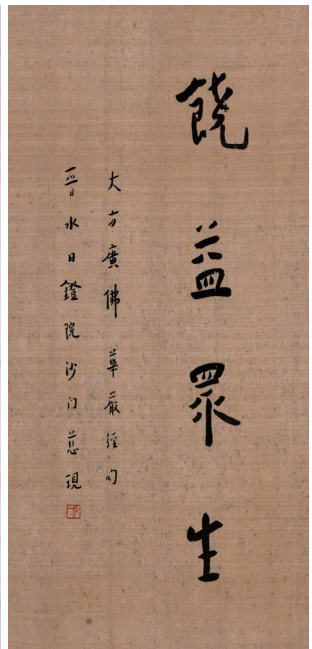 饒益眾生
大方廣佛華嚴經句
晉水日鐙院沙门慧現